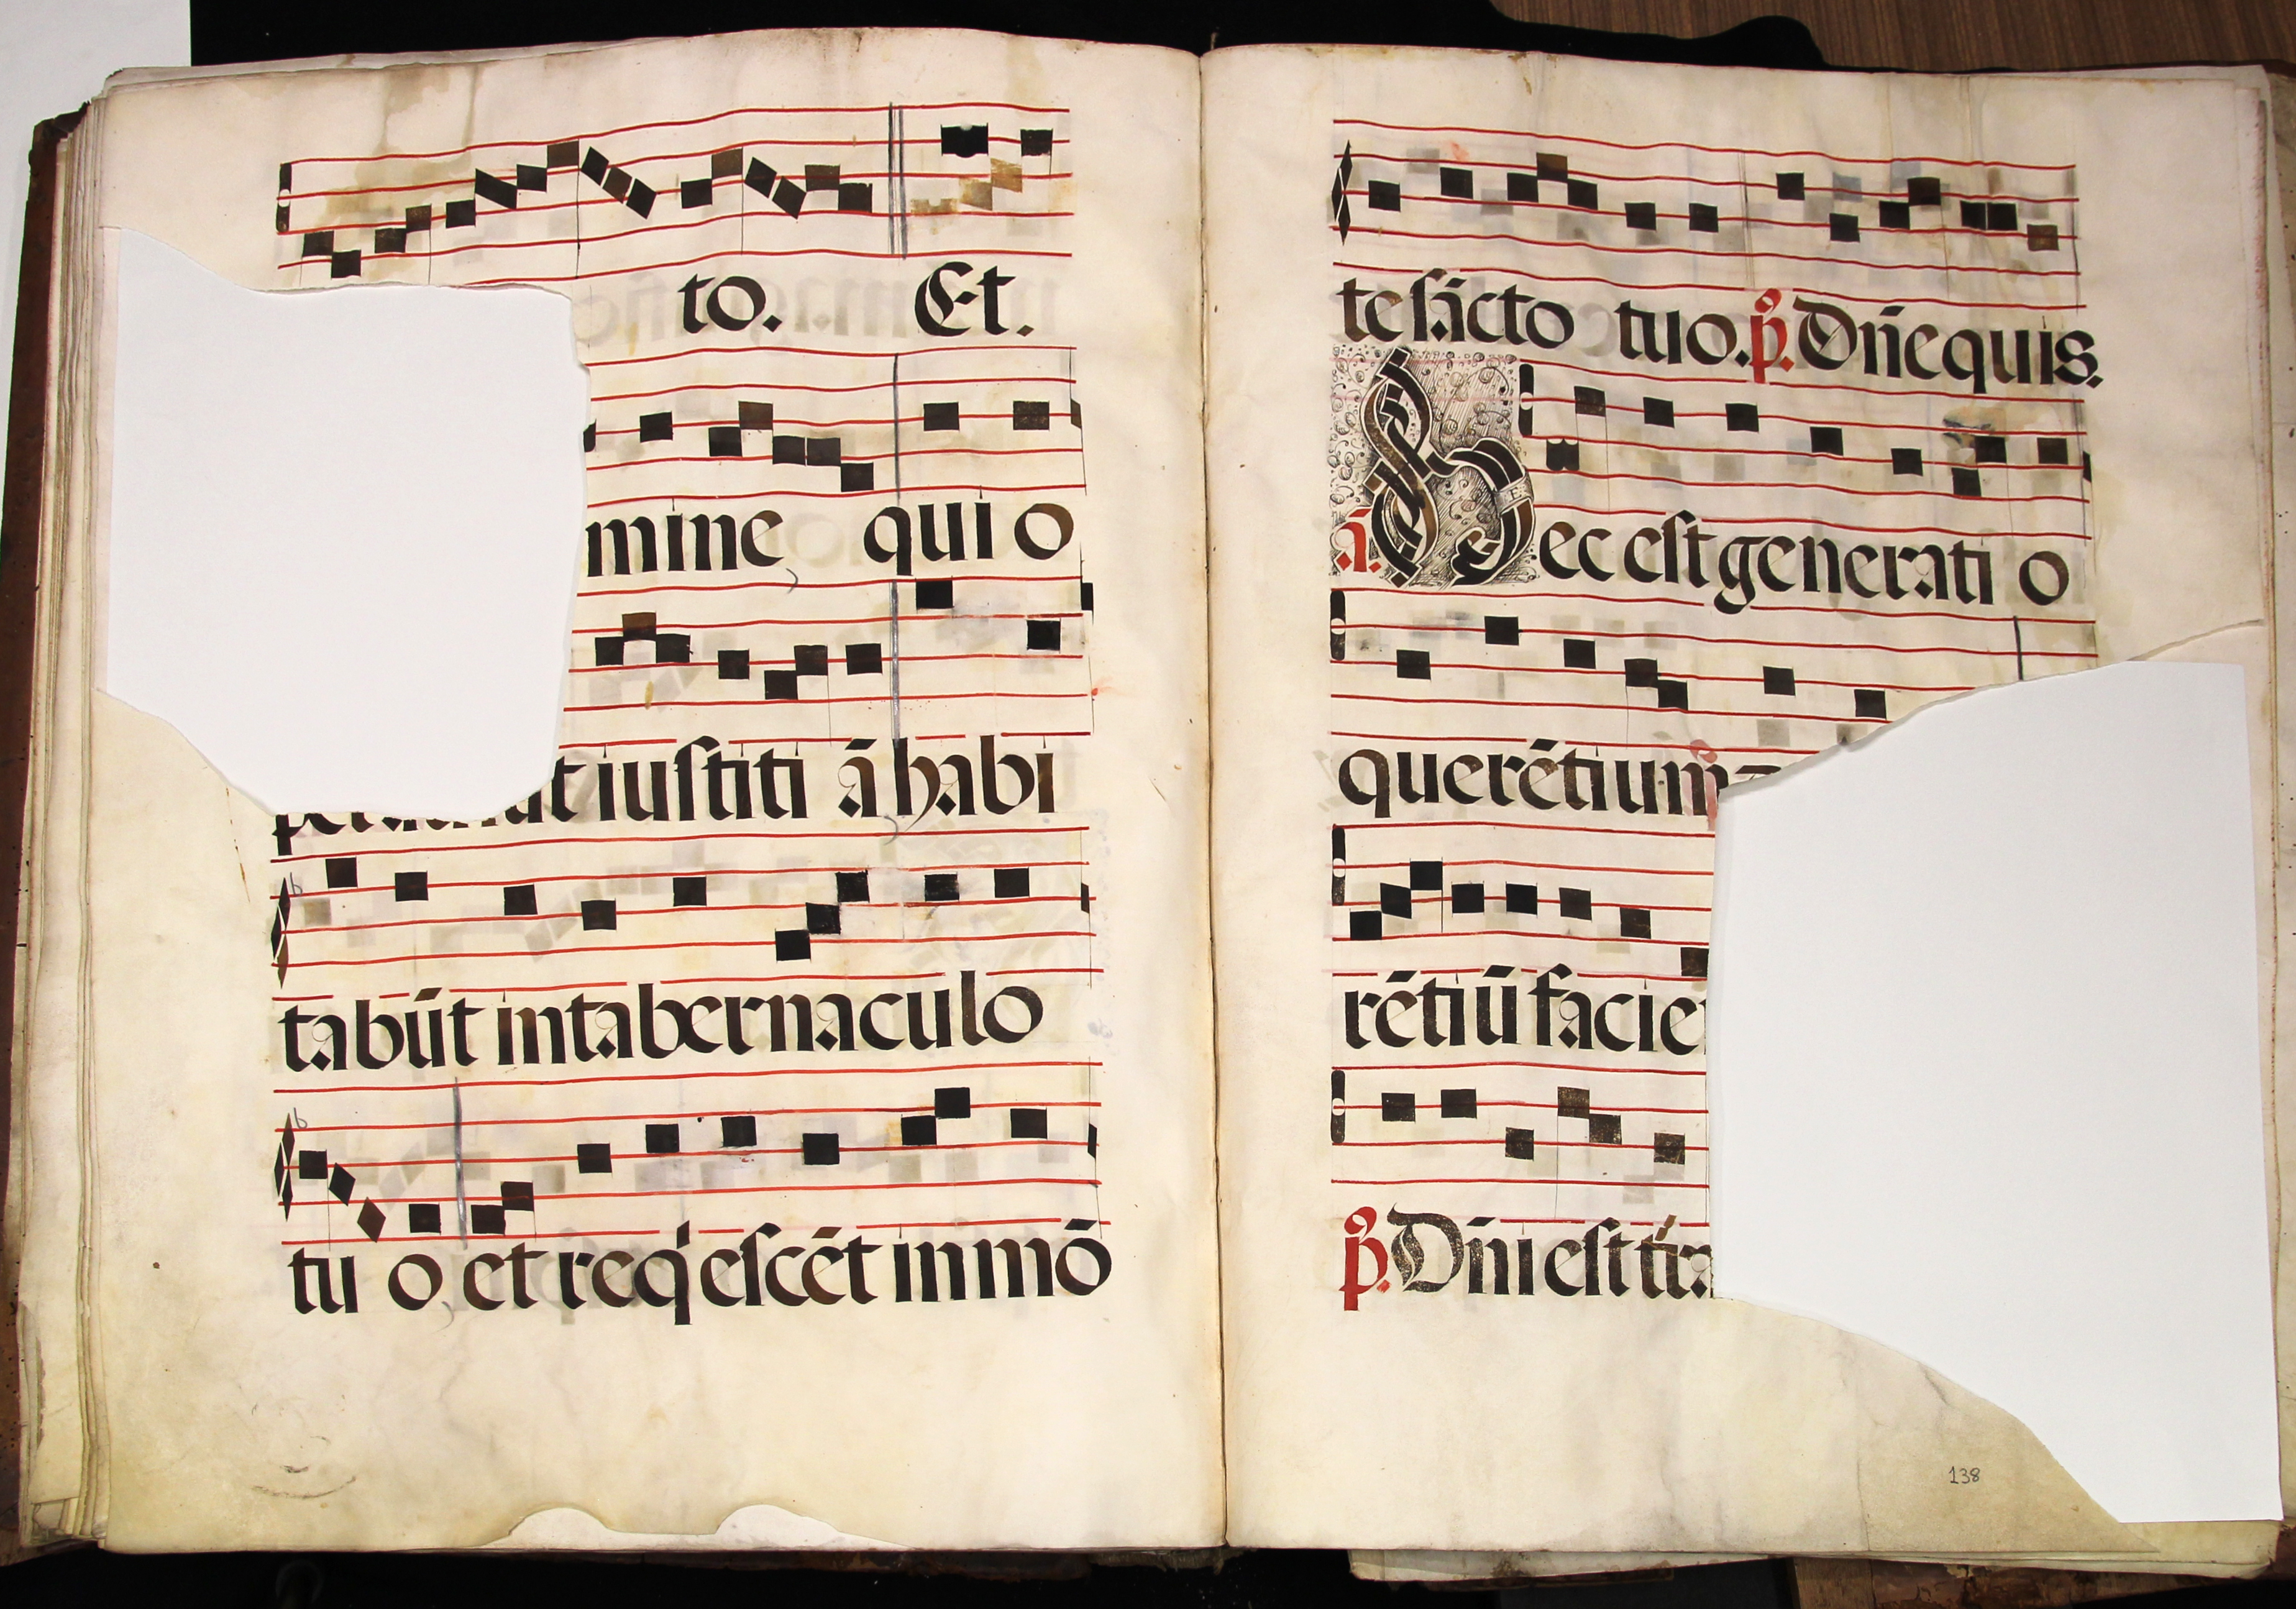 to. Et.
mine qui o
ut iustiti ā habi
tabūt intabernaculo
tu o et req̇escēt in mō
te sācto tuo. p̄. Dn̄e quis.
ā. Hec est generati o
querētium
rētiū facie
p̄. Dn̄i est tr̄a
138